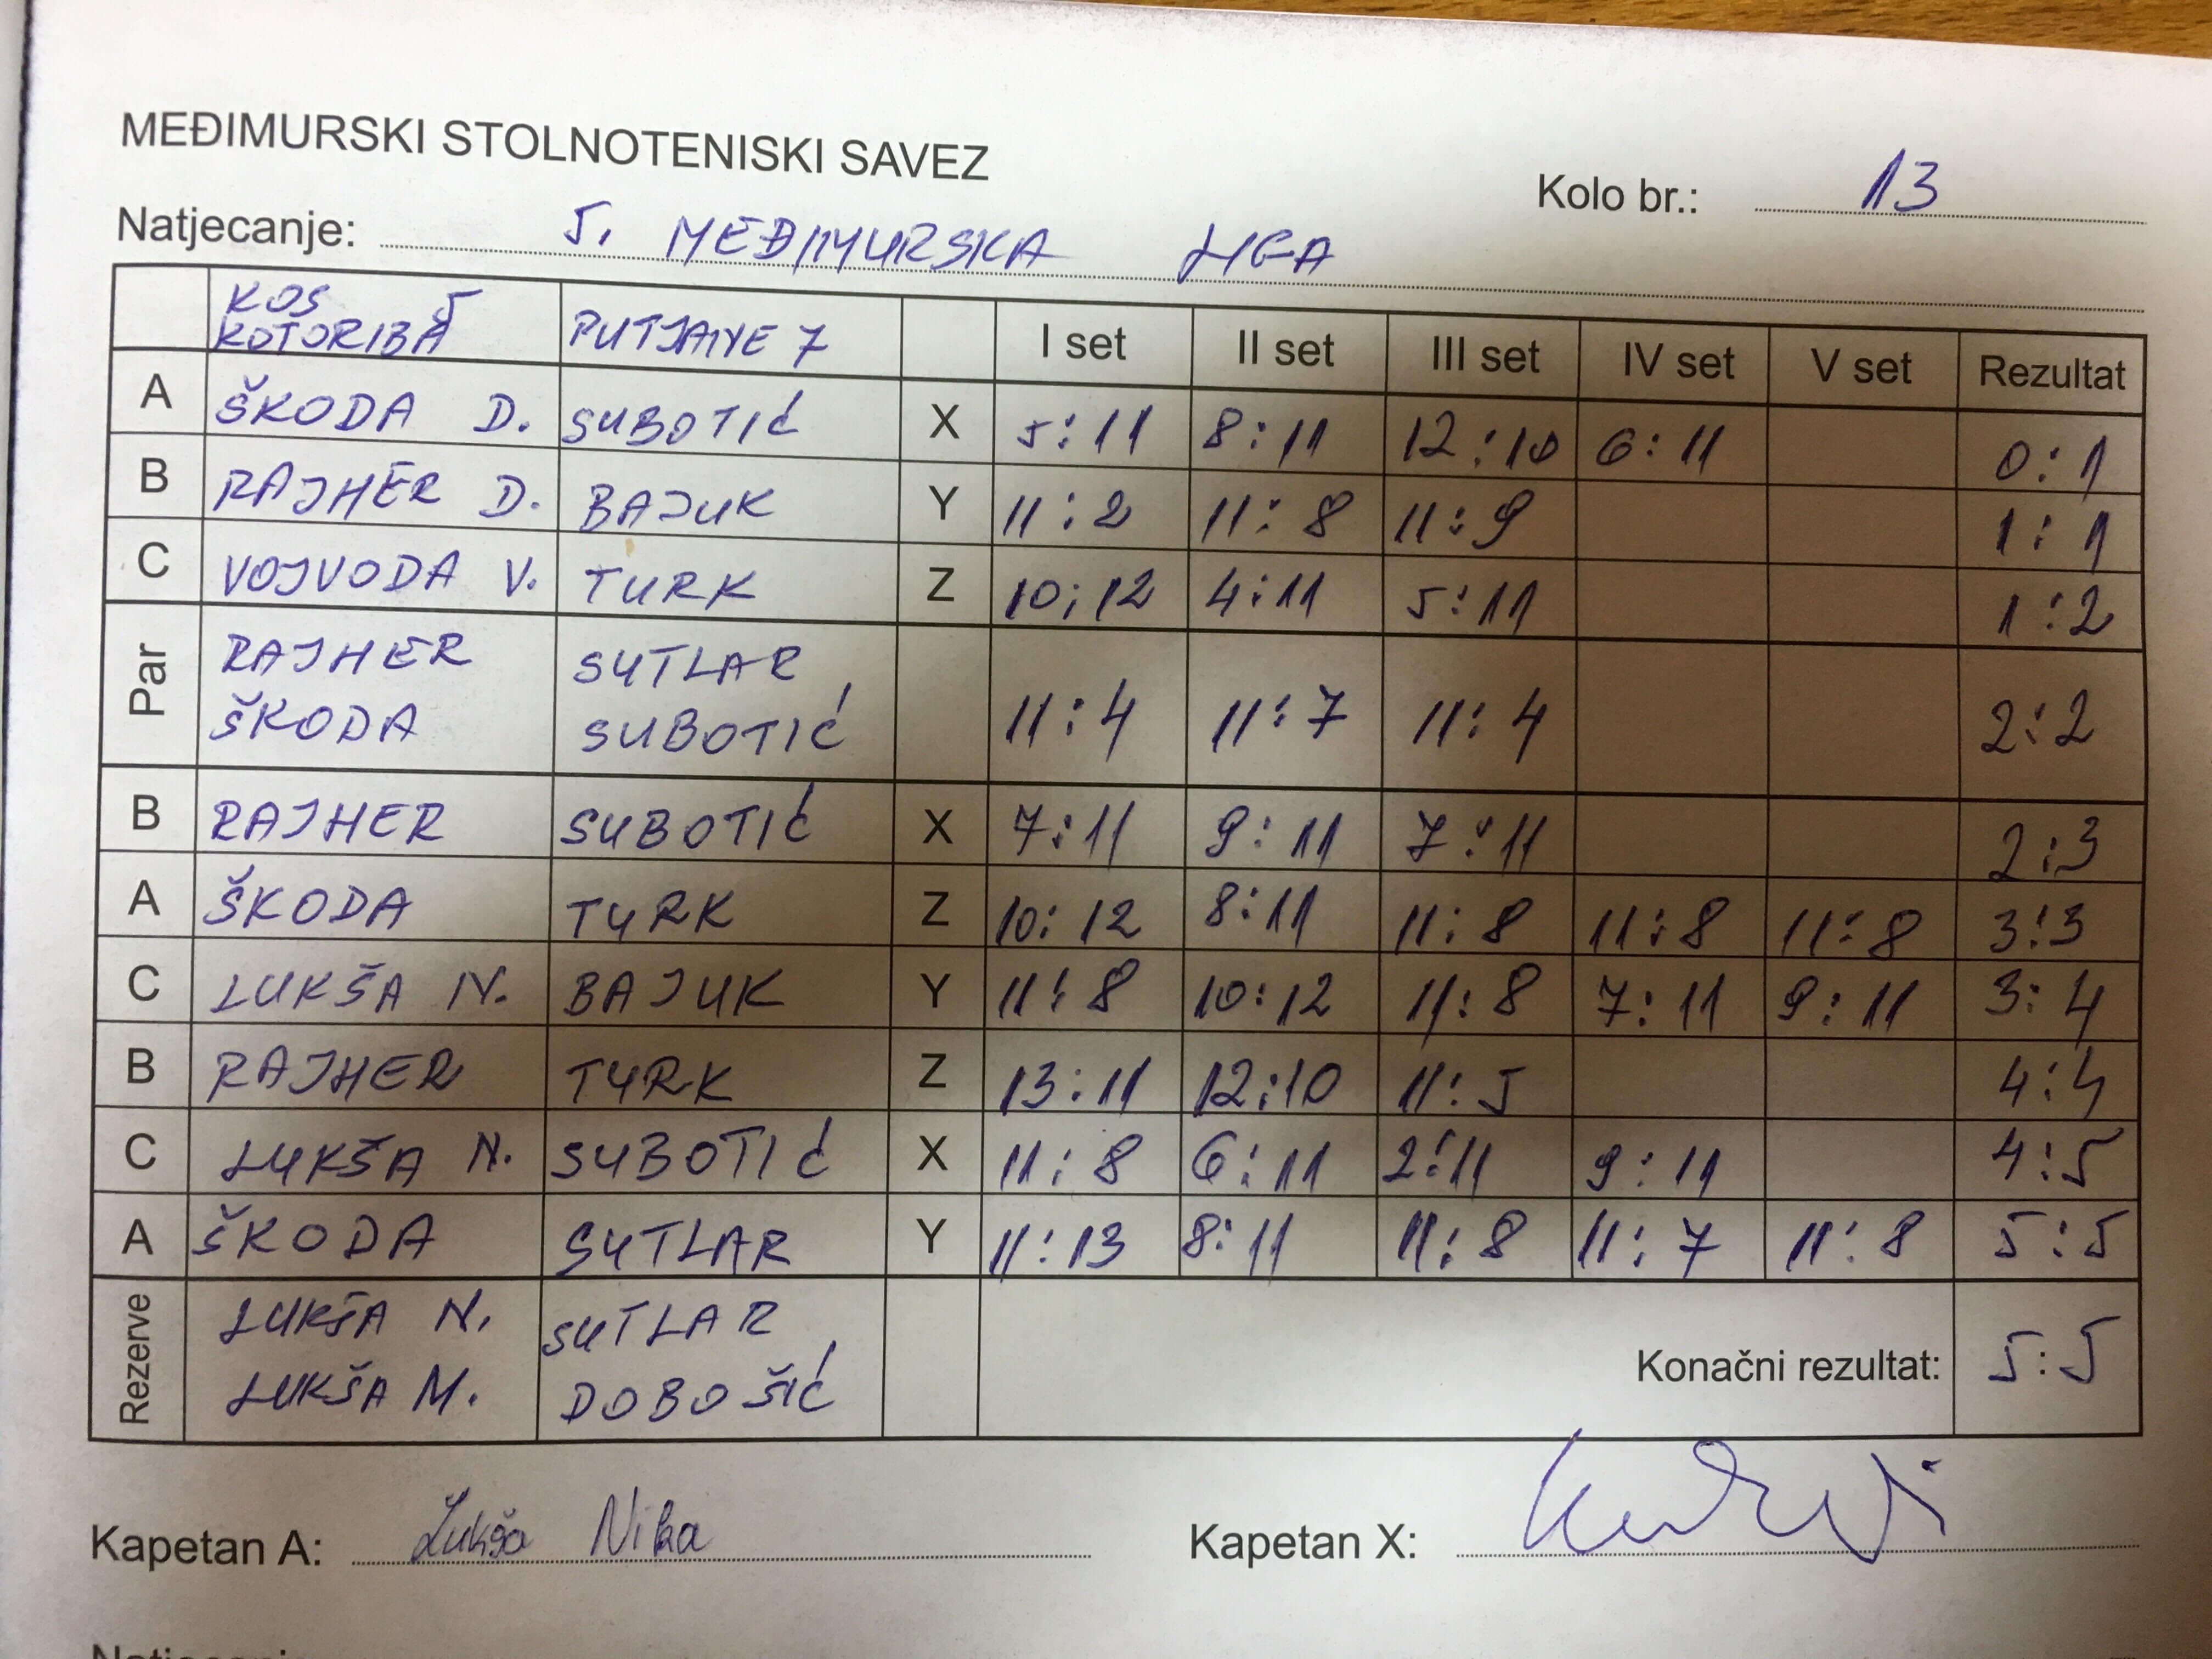 MEĐIMURSKI STOLNOTENISKI SAVEZ
Kolo br.: 13
Natjecanje: 5. MEĐIMURSKA LIGA
KOS KOTORIBA 5 PUTJANE 7 I set II set III set IV set V set Rezultat
A ŠKODA D. SUBOTIĆ X 5:11 8:11 12:10 6:11 0:1
B RAJHER D. BAJUK Y 11:2 11:8 11:9 1:1
C VOJVODA V. TURK Z 10:12 4:11 5:11 1:2
Par RAJHER ŠKODA SUTLAR SUBOTIĆ 11:4 11:7 11:4 2:2
B RAJHER SUBOTIĆ X 7:11 9:11 7:11 2:3
A ŠKODA TURK Z 10:12 8:11 11:8 11:8 11:8 3:3
C LUKŠA N. BAJUK Y 11:8 10:12 11:8 7:11 9:11 3:4
B RAJHER TURK Z 13:11 12:10 11:5 4:4
C LUKŠA N. SUBOTIĆ X 11:8 6:11 2:11 9:11 4:5
A ŠKODA SUTLAR Y 11:13 8:11 11:8 11:7 11:8 5:5
Rezerve LUKŠA N. SUTLAR
LUKŠA M. DOBOŠIĆ
Konačni rezultat: 5:5
Kapetan A: Lukša Nika Kapetan X: